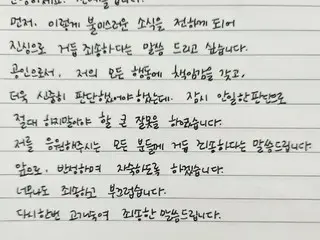 먼저, 이렇게 불미스러운 소식을 전하게 되어
진심으로 거듭 죄송하다는 말씀 드리고 싶습니다.
공인으로서, 저의 모든 행동에 책임감을 갖고,
더욱 신중히 판단했어야 했는데. 잠시 안일한 판단으로
절대 하지말아야 할 큰 잘못을 하였습니다.
저를 응원해주시는 모든 분들께 거듭 죄송하다는 말씀드립니다.
앞으로, 반성하며 자숙하도록 하겠습니다.
너무나도 죄송하고 부끄럽습니다.
다시한번 고개숙여 죄송한 말씀드립니다.